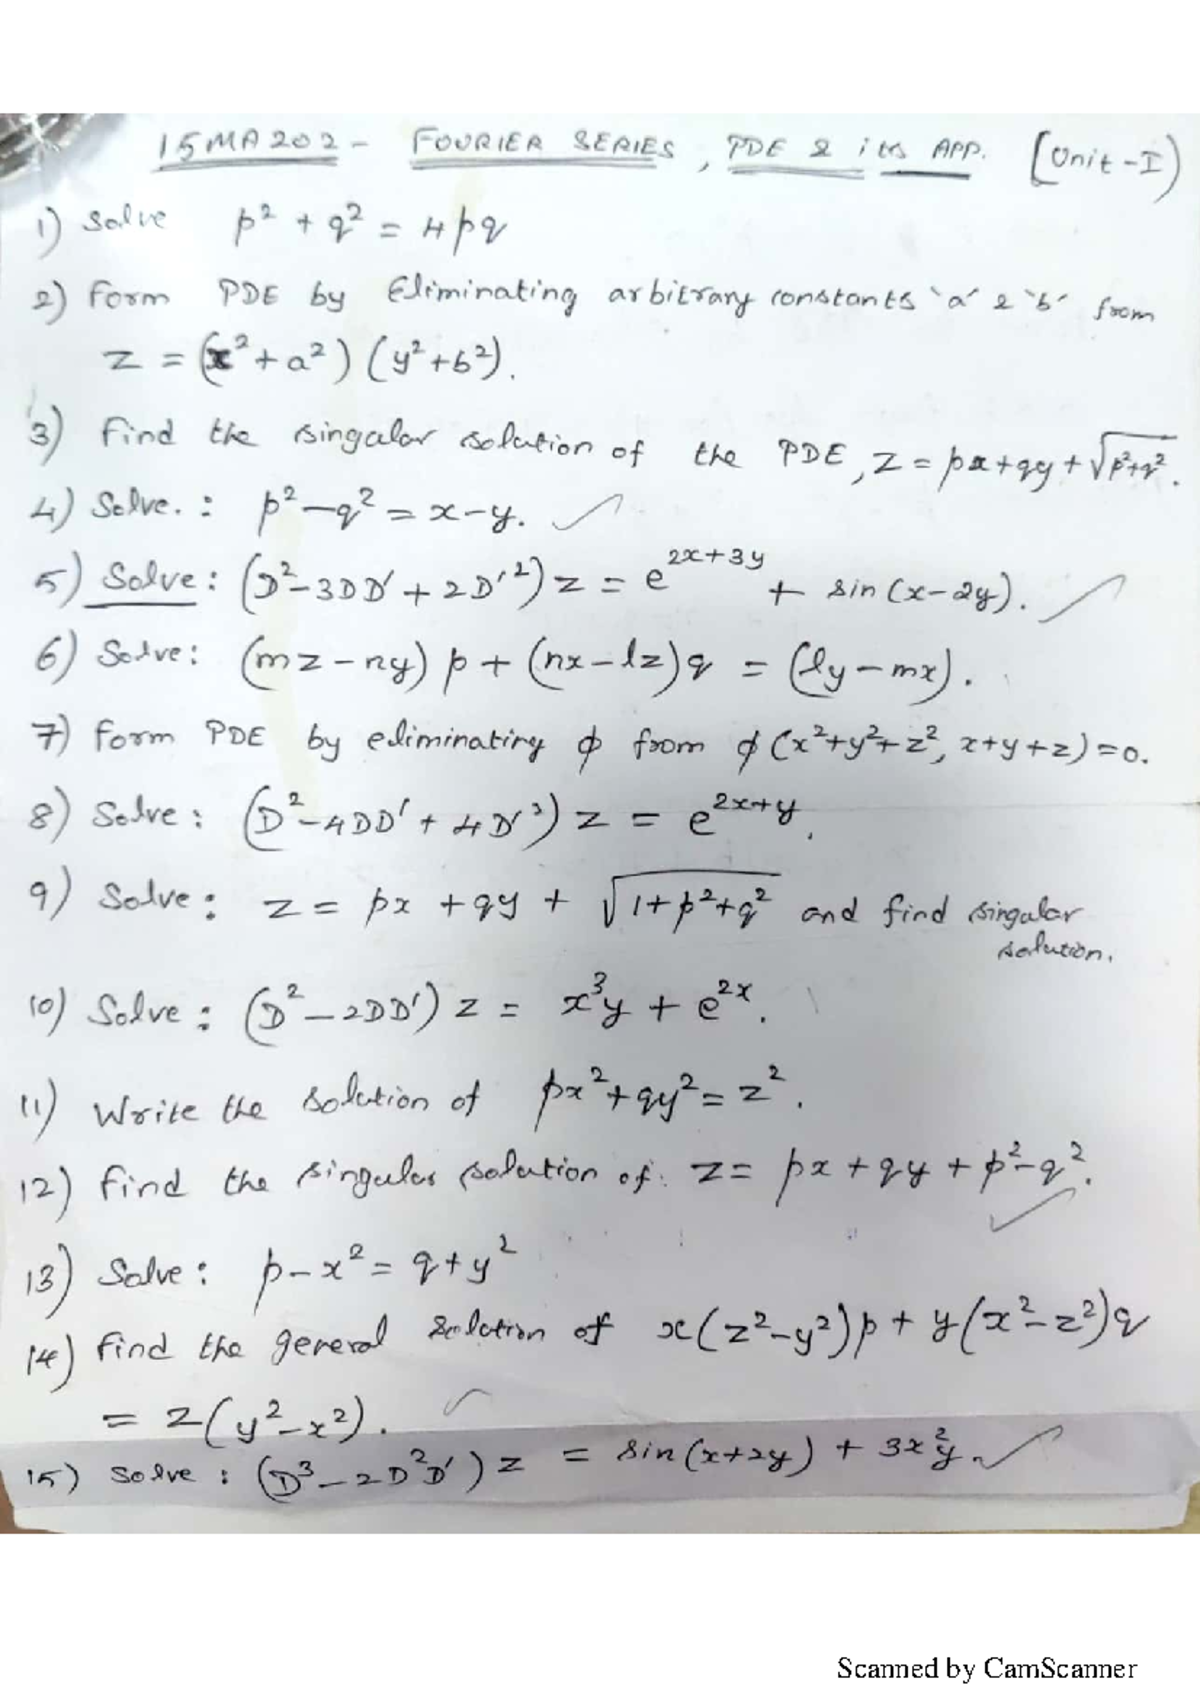 15MA202 - FOURIER SERIES, PDE & its APP. [Unit-I)
1) Solve p² + q² = 4pq
2) Form PDE by Eliminating arbitrary constants 'a' & 'b' from
z = (x² + a²) (y² + b²).
3) Find the singular solution of the PDE, z = px + qy + √p²+q².
4) Solve. : p² - q² = x - y.
5) Solve : (D² - 3DD' + 2D'²) z = e^(2x+3y) + sin(x-2y).
6) Solve: (mz - ny) p + (nx - lz) q = (ly - mx).
7) Form PDE by eliminating ϕ from ϕ(x²+y²+z², x+y+z) = 0.
8) Solve : (D² - 4DD' + 4D'²) z = e^(2x+y).
9) Solve : z = px + qy + √1+p²+q² and find singular
solution.
10) Solve : (D² - 2DD') z = x³y + e^(2x).
11) Write the solution of px² + qy² = z².
12) Find the singular solution of: z = px + qy + p² - q².
13) Solve : p - x² = q + y²
14) Find the general solution of x(z² - y²)p + y(x² - z²)q
= z(y² - x²).
15) Solve : (D³ - 2D²D') z = sin(x+2y) + 3x²y.
Scanned by CamScanner